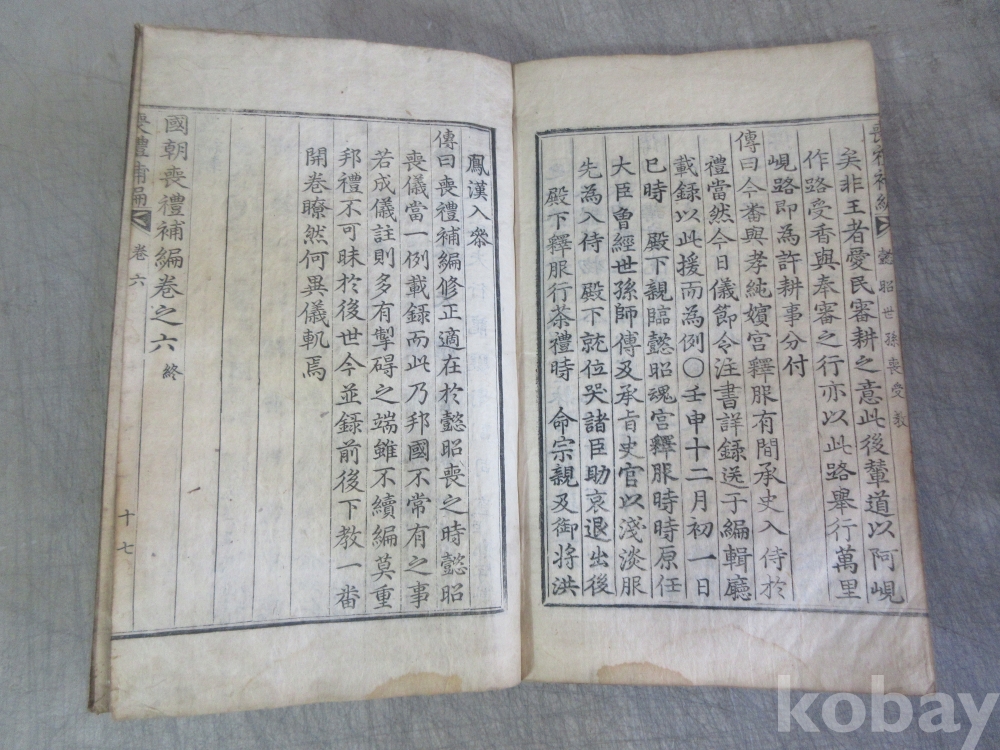 矣非王者愛民審耕之意此後輦道以阿峴
作路受香與奉審之行亦以此路舉行萬里
峴路即為許耕事分付
傳曰今番與孝純嬪宮釋服有間承史入侍於
禮當然今日儀節令注書詳錄送于編輯廳
載錄以此援而為例○壬申十二月初一日
巳時 殿下親臨懿昭魂宮釋服時時原任
大臣曾經世孫師傅及承旨史官以淺淡服
先為入侍 殿下就位哭諸臣助哀退出後
殿下釋服行茶禮時 命宗親及御將洪
鳳漢入參
傳曰喪禮補編修正適在於懿昭喪之時懿昭
喪儀當一例載錄而此乃邦國不常有之事
若成儀註則多有掣碍之端雖不續編莫重
邦禮不可昧於後世今並錄前後下教一番
開卷瞭然何異儀軌焉
國朝喪禮補編卷之六 終
喪禮補編 卷六 十七
喪禮補編 懿昭世孫喪受教
kobay